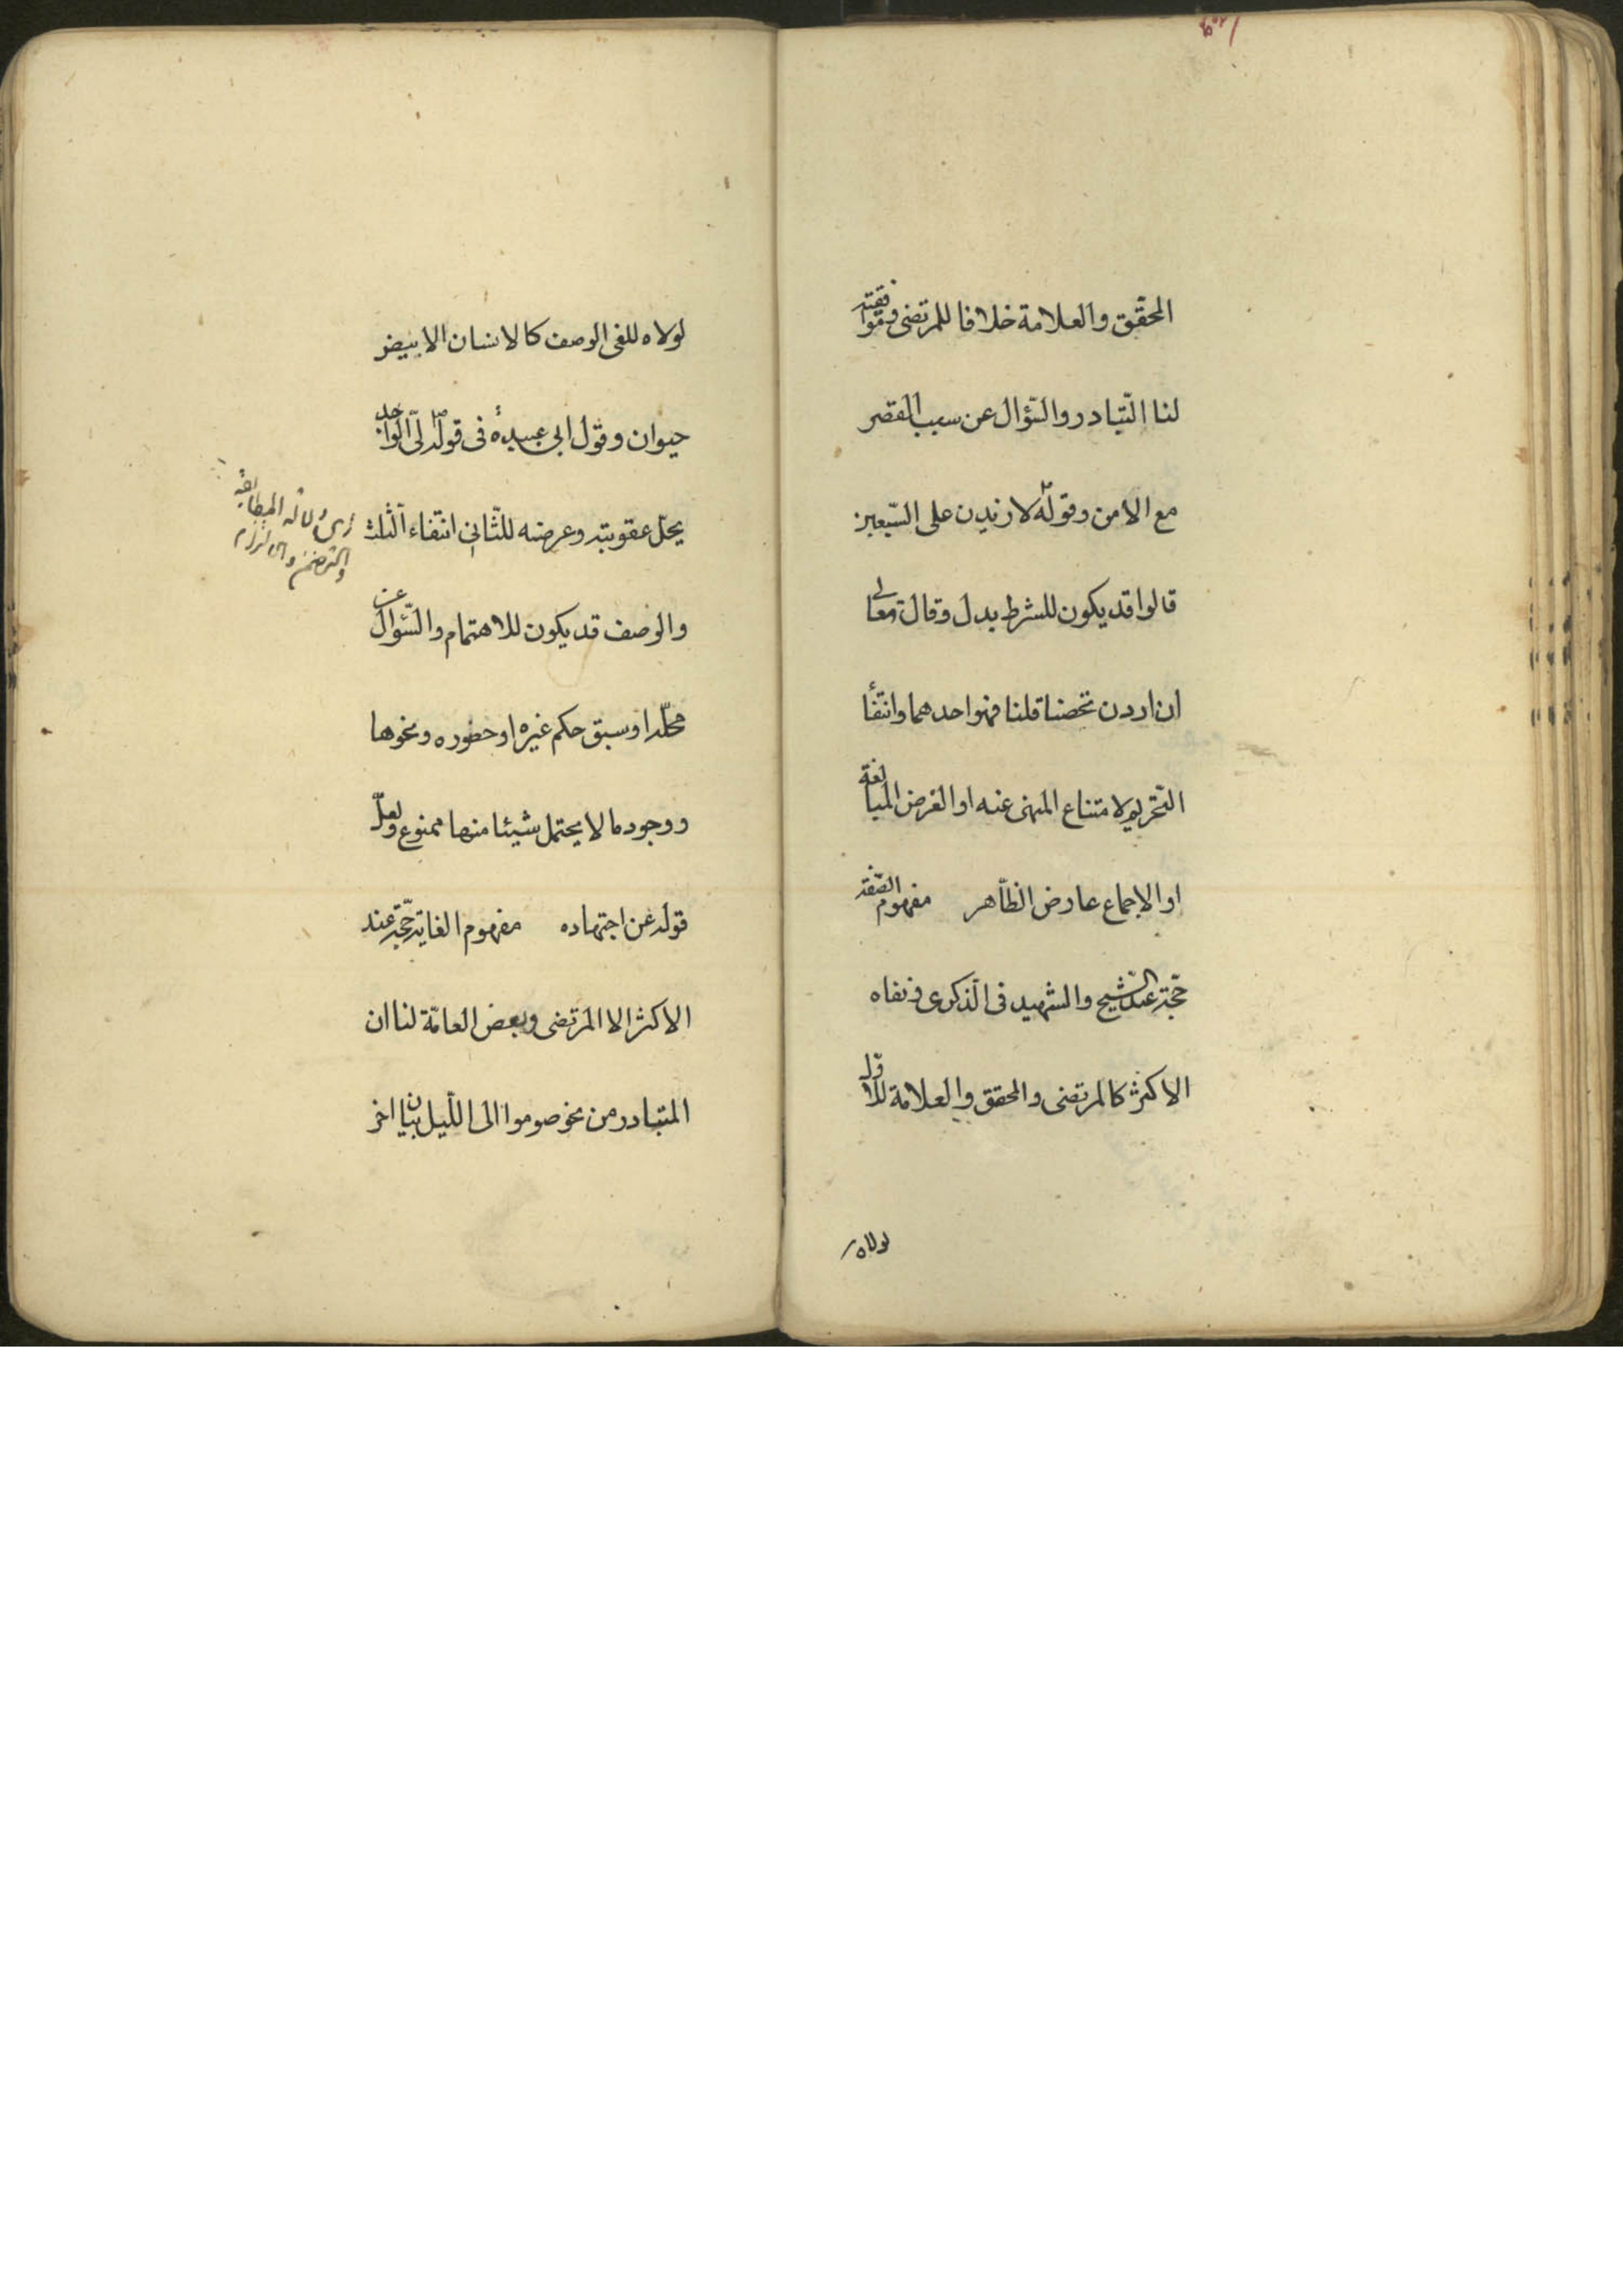 المحقّق والعلامة خلافا للمرتضى وموافقته
لنا التّبادر والسّؤال عن سبب القصر
مع الامن وقولهٌ لازيدن على السّبعين
قالوا قد يكون للشرط بدل وقال تعالى
ان اردن تحصنا قلنا فهو احدهما وانتفأ
التّحريم لامتناع المنهى عنه او الغرض المبالغة
او الاجماع عارض الظّاهر مفهوم الصّفة
حجّة عند الشّيخ والشّهيد فى الذّكرى ونفاه
الاكثر كالمرتضى والمحقق والعلامة للاوّل
لولاه
لولاه للغى الوصف كالانسان الابيض
حيوان وقول ابى عبيدة فى قوله لىّ الواجد
يحلّ عقوبته وعرضه للثّانى انتفاء الثّلث
والوصف قد يكون للاهتمام والسّؤال عن
محلّه او سبق حكم غيره او حضوره ونحوها
ووجود ما لا يحتمل شيئا منها ممنوع ولعلّ
قوله عن اجتهاده مفهوم الغاية حجّة عند
الاكثر الا المرتضى وبعض العامّة لنا ان
المتبادر من نحو صوموا الى اللّيل بيان اخر
اى دلالة المطابقة
والتضمن والالتزام